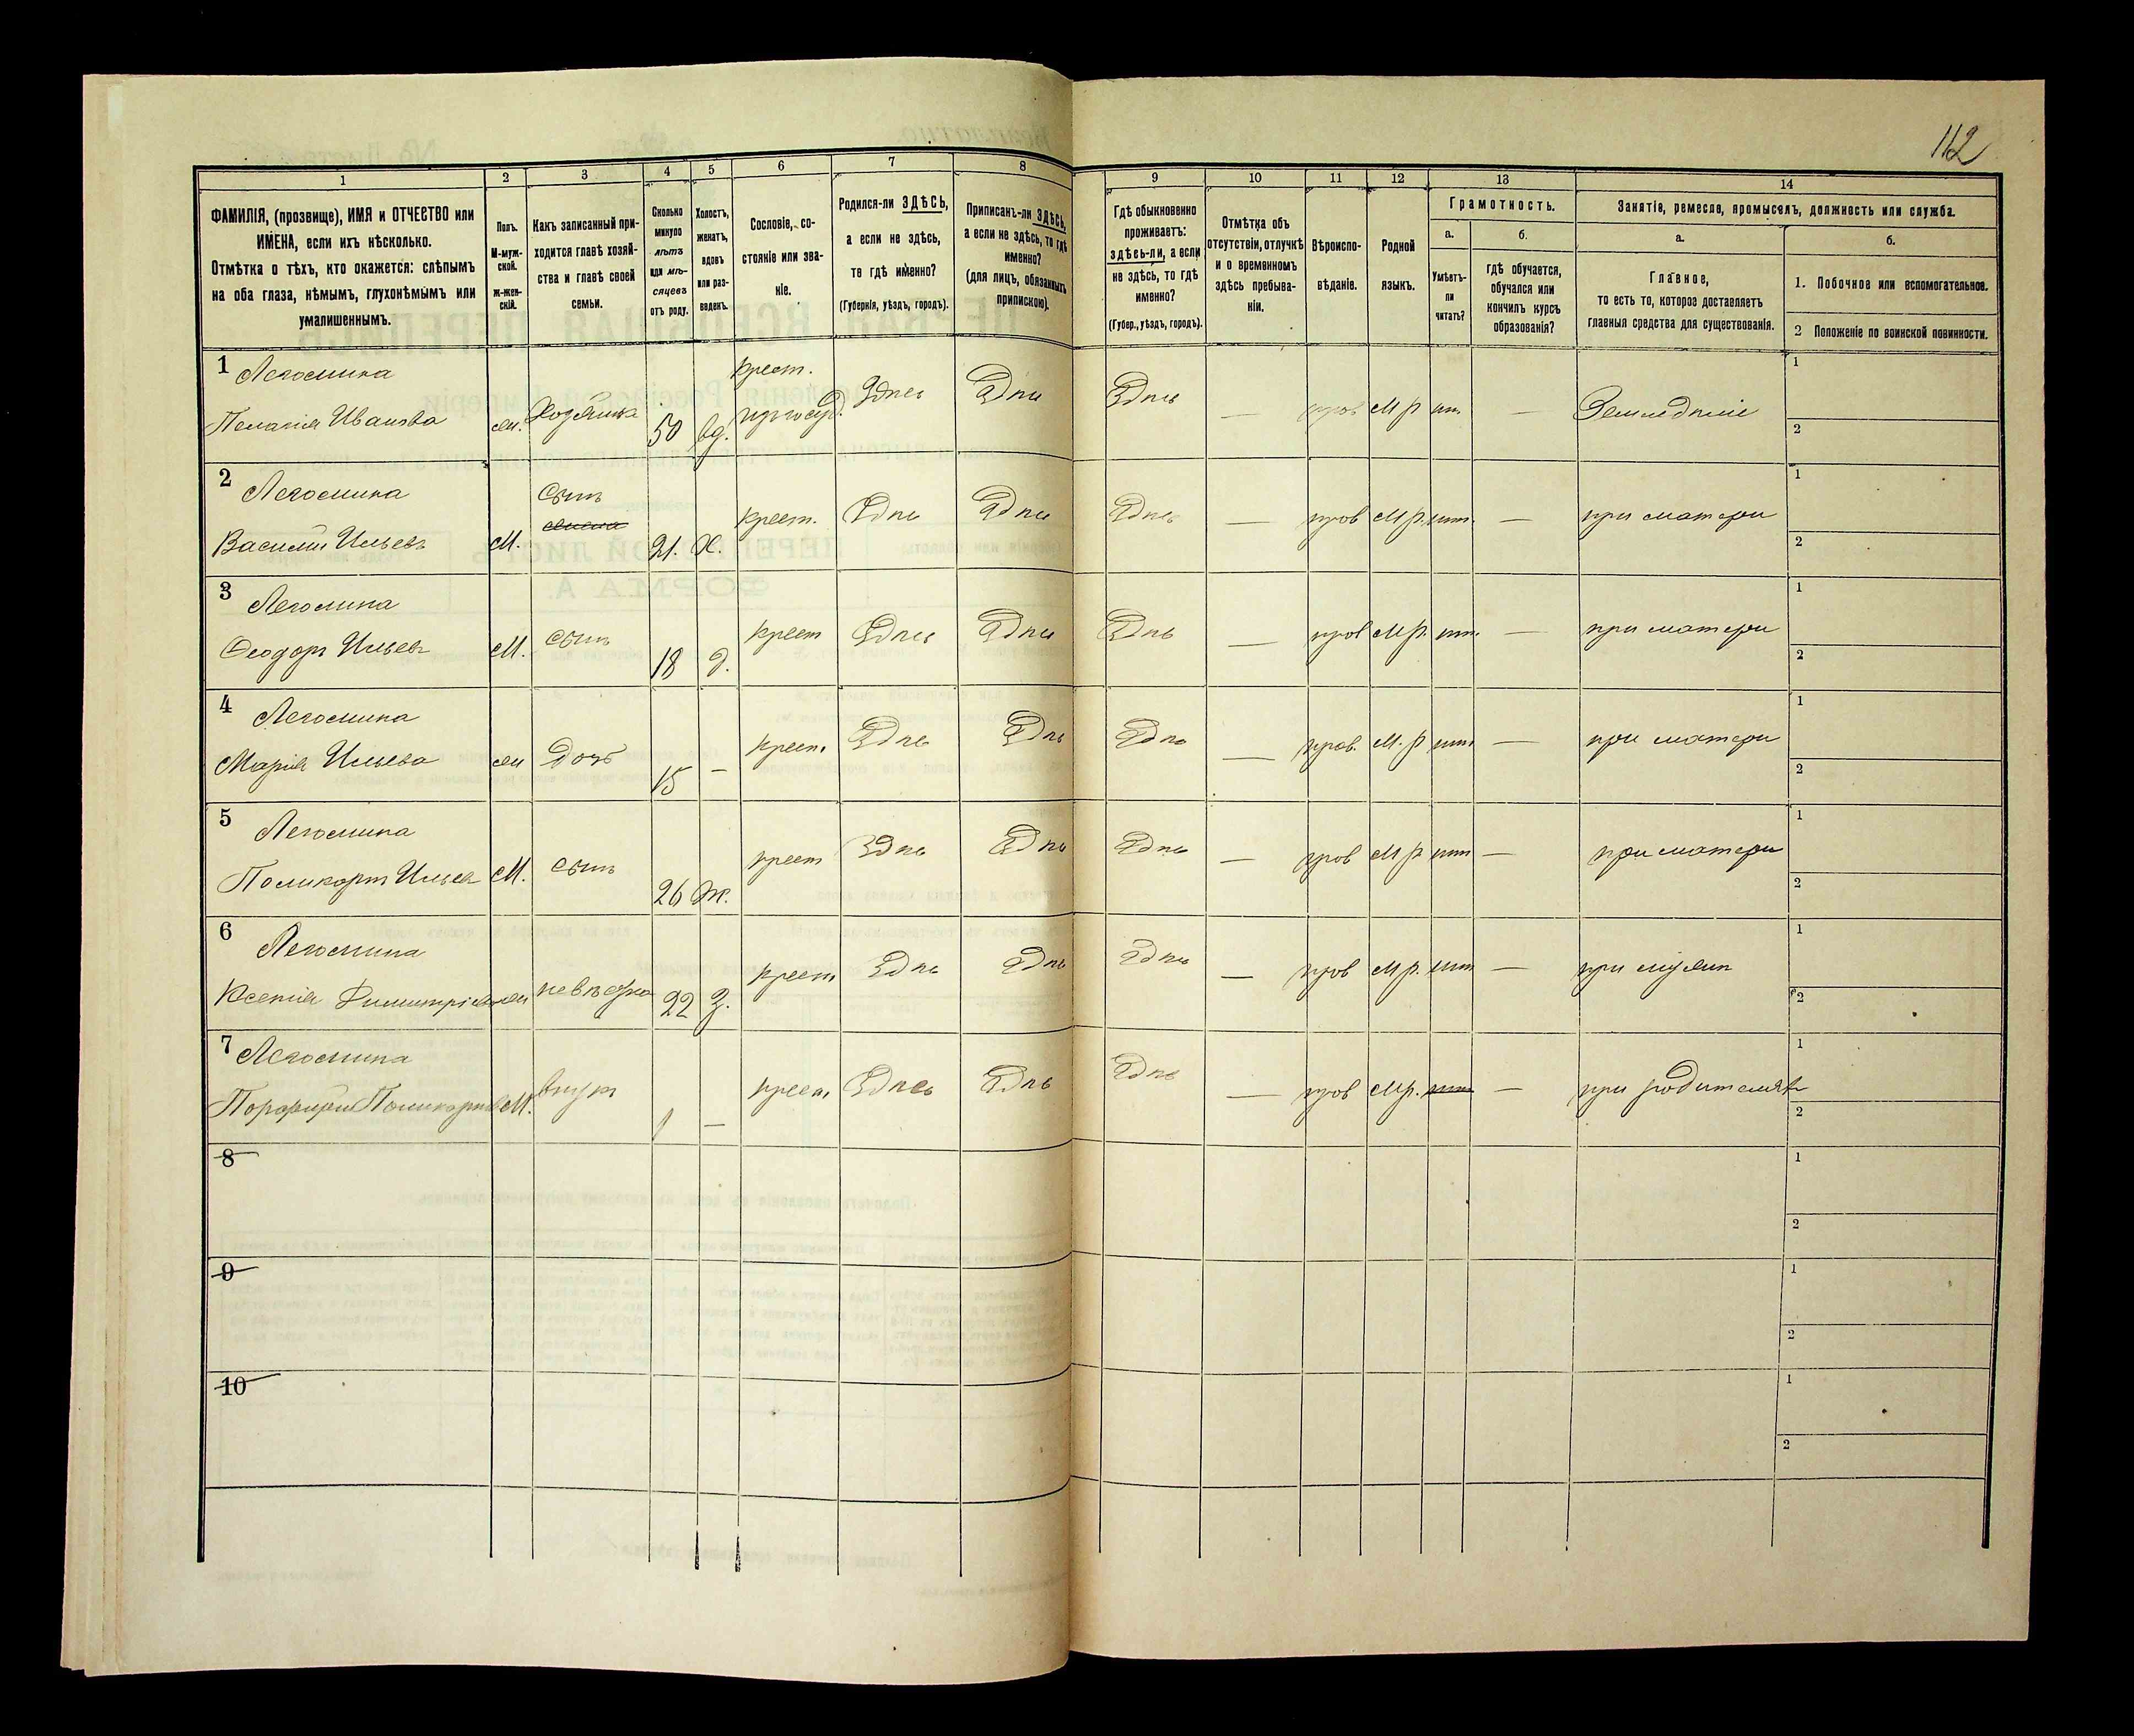 112
1
2
3
4
5
6
7
8
9
10
11
12
13
14
ФАМИЛІЯ, (прозвище), ИМЯ и ОТЧЕСТВО или
ИМЕНА, если ихъ нѣсколько.
Отмѣтка о тѣхъ, кто окажется: слѣпымъ
на оба глаза, нѣмымъ, глухонѣмымъ или
умалишеннымъ.
Полъ.
М-муж-
ской.
ж-жен-
скій.
Какъ записанный при-
ходится главѣ хозяй-
ства и главѣ своей
семьи.
Сколько
минуло
лѣтъ
или мѣ-
сяцевъ
отъ роду.
Холостъ,
женатъ,
вдовъ
или раз-
веденъ.
Сословіе, со-
стояніе или зва-
ніе.
Родился-ли ЗДѢСЬ,
а если не здѣсь,
то гдѣ именно?
(Губернія, уѣздъ, городъ).
Приписанъ-ли ЗДѢСЬ,
а если не здѣсь, то гдѣ
именно?
(для лицъ, обязанныхъ
припискою).
Гдѣ обыкновенно
проживаетъ:
здѣсь-ли, а если
не здѣсь, то гдѣ
именно?
(Губер., уѣздъ, городъ).
Отмѣтка объ
отсутствіи, отлучкѣ
и о временномъ
здѣсь пребыва-
ніи.
Вѣроиспо-
вѣданіе.
Родной
языкъ.
Грамотность.
а.
Умѣетъ-
ли
читать?
б.
гдѣ обучается,
обучался или
кончилъ курсъ
образованія?
Занятія, ремесло, промыселъ, должность или служба.
а.
Главное,
то есть то, которое доставляетъ
главныя средства для существованія.
б.
1. Побочное или вспомогательное.
2 Положеніе по воинской повинности.
1
Пелагія Иванова
Хозяйка 50 вд.
крест.
Здѣсь Здѣсь Здѣсь — прав М р — Земледѣліе
1
2
2
Василій Ильевъ
М. сынъ 21. Х. крест. Здѣсь Здѣсь Здѣсь — прав М р. — при матери
1
2
3
Ѳеодоръ Ильевъ
М. сынъ 18 крест Здѣсь Здѣсь Здѣсь — прав М р. — при матери
1
2
4
Марія Ильева
Дочь 15 — крест. Здѣсь Здѣсь Здѣсь — прав. М. р — при матери
1
2
5
Поликарпъ Ильев
М. сынъ 26 ж. крест Здѣсь Здѣсь Здѣсь — прав М р — при матери
1
2
6
Ксенія Димитріева
невѣстка 22 З. крест Здѣсь Здѣсь Здѣсь — прав М р. — при мужѣ
1
2
7
Порфирій Поликарповъ
М. внукъ 1 — крест Здѣсь Здѣсь Здѣсь — прав М р. — при родителяхъ
1
2
8
1
2
9
1
2
10
1
2